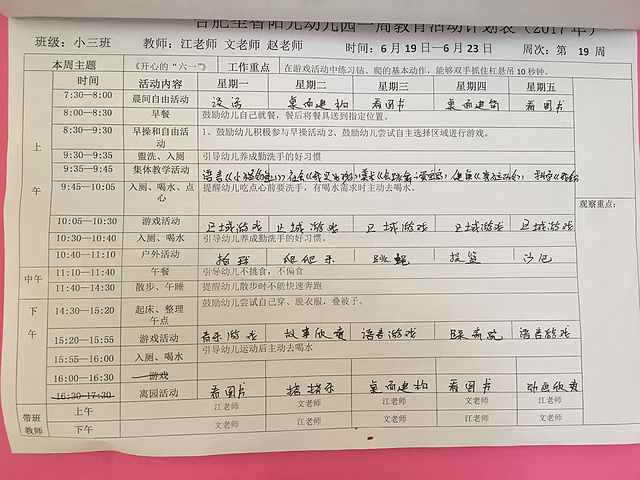 合肥至智阳光幼儿园一周教育活动计划表（2017 年）
班级：小三班 教师：江老师 文老师 赵老师 时间：6 月 19 日—6 月 23 日 周次：第 19 周
本周主题 《开心的“六一”》 工作重点 在游戏活动中练习钻、爬的基本动作，能够双手抓住杠悬吊 10 秒钟。
时间 活动内容 星期一 星期二 星期三 星期四 星期五
上午
7:30—8:00 晨间自由活动 桌面建构 看图书 桌面建构 看图书
8:00—8:30 早餐 鼓励幼儿自己就餐，餐后将餐具送到指定位置。
8:30—9:30 早操和自由活动 1、鼓励幼儿积极参与早操活动 2、鼓励幼儿尝试自主选择区域进行游戏。
9:30—9:35 盥洗、入厕 引导幼儿养成勤洗手的好习惯
9:35—9:45 集体教学活动 语言 社会 健康
9:45—10:05 入厕、喝水、点心 提醒幼儿吃点心前要洗手，有喝水需求时主动去喝水。
观察重点：
10:05—10:30 游戏活动 区域游戏 区域游戏 区域游戏 区域游戏 区域游戏
10:30—10:40 入厕、喝水 引导幼儿养成勤洗手的好习惯。
10:40—11:10 户外活动 拍球 爬爬乐 跳绳 投篮 沙包
中午
11:10—11:40 午餐 引导幼儿不挑食，不偏食
11:40—14:30 散步、午睡 提醒幼儿散步时不能快速奔跑
下午
14:30—15:20 起床、整理午点 鼓励幼儿尝试自己穿、脱衣服，叠被子。
15:20—15:55 游戏活动 音乐游戏 故事欣赏 语言游戏 语言游戏
15:55—16:00 入厕、喝水 引导幼儿运动后主动去喝水
16:00—16:30 游戏
16:30-17:30 离园活动 看图书 猜猜乐 桌面建构 看图书 动画欣赏
带班教师 上午 江老师 文老师 江老师 文老师 江老师
下午 文老师 江老师 文老师 江老师 文老师